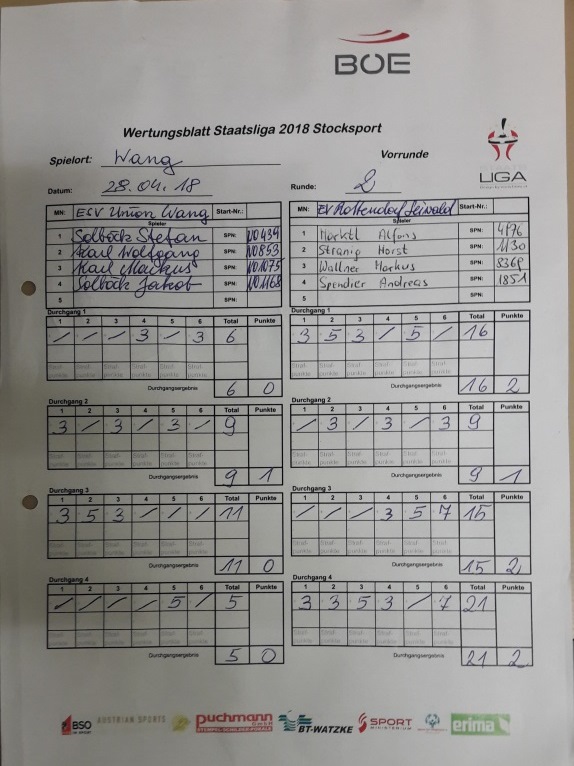 BOE
Wertungsblatt Staatsliga 2018 Stocksport
LIGA
Spielort: Wang Vorrunde
Datum: 28.04.18 Runde: 2
MN: ESV Union Wang Start-Nr.:
Spieler
1 Solböck Stefan SPN:
2 Karl Wolfgang SPN: NO853
3 Karl Markus SPN: NO1075
4 Solböck Jakob SPN: NO1168
5 SPN:
MN: EV Rottendorf Seiwald Start-Nr.:
Spieler
1 Alfons SPN: 4176
2 Stranig Horst SPN: 1130
3 Wallner Markus SPN: 8369
4 Spendier Andreas SPN: 1851
5 SPN:
Durchgang 1
1 2 3 4 5 6 Total Punkte
/ / / 3 / 3 6
Straf-punkte Straf-punkte Straf-punkte Straf-punkte Straf-punkte Straf-punkte
Durchgangsergebnis 6 0
Durchgang 1
1 2 3 4 5 6 Total Punkte
3 5 3 / 5 / 16
Straf-punkte Straf-punkte Straf-punkte Straf-punkte Straf-punkte Straf-punkte
Durchgangsergebnis 16 2
Durchgang 2
1 2 3 4 5 6 Total Punkte
3 / 3 / 3 / 9
Straf-punkte Straf-punkte Straf-punkte Straf-punkte Straf-punkte Straf-punkte
Durchgangsergebnis 9 1
Durchgang 2
1 2 3 4 5 6 Total Punkte
/ 3 / 3 / 3 9
Straf-punkte Straf-punkte Straf-punkte Straf-punkte Straf-punkte Straf-punkte
Durchgangsergebnis 9 1
Durchgang 3
1 2 3 4 5 6 Total Punkte
3 5 3 / / / 11
Straf-punkte Straf-punkte Straf-punkte Straf-punkte Straf-punkte Straf-punkte
Durchgangsergebnis 11 0
Durchgang 3
1 2 3 4 5 6 Total Punkte
/ / / 3 5 7 15
Straf-punkte Straf-punkte Straf-punkte Straf-punkte Straf-punkte Straf-punkte
Durchgangsergebnis 15 2
Durchgang 4
1 2 3 4 5 6 Total Punkte
/ / / / 5 / 5
Straf-punkte Straf-punkte Straf-punkte Straf-punkte Straf-punkte Straf-punkte
Durchgangsergebnis 5 0
Durchgang 4
1 2 3 4 5 6 Total Punkte
3 3 5 3 / 7 21
Straf-punkte Straf-punkte Straf-punkte Straf-punkte Straf-punkte Straf-punkte
Durchgangsergebnis 21 2
BSO AUSTRIAN SPORTS puchmann GmbH STEMPEL·SCHILDER·POKALE BT-WATZKE SPORT MINISTERIUM erima